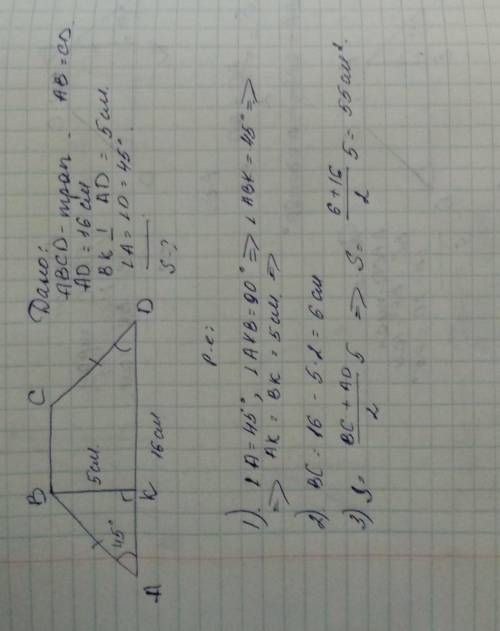 Дано:
ABCD - трап. AB = CD.
AD = 16 см
BK ⊥ AD = 5 см.
∠A = ∠D = 45°.
S - ?
B
C
5 см.
45°
A
K
16 см
D
Р-е:
1). ∠A = 45°, ∠AKB = 90° => ∠ABK = 45° =>
=> AK = BK = 5 см. =>
2) BC = 16 - 5·2 = 6 см
3) S = BC + AD / 2 5 => S = 6 + 16 / 2 5 = 55 см².